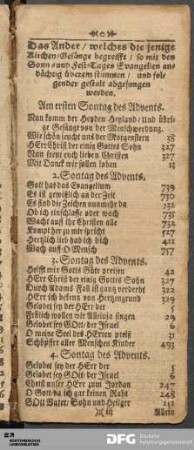 Das Ander / welches die jenige
Kirchen-Gesänge begreifft / so mit den
Sonn- und Fest-Tages Evangelien an-
dächtig überein stimmen / und fol-
gender gestalt abgesungen
werden.
Am ersten Sontag des Advents.
Nun komm der Heyden Heyland / und übri-
ge Gesänge von der Menschwerdung.
Wie schön leucht uns der Morgenstern 38
HErr Christ der einig Gottes Sohn 327
Nun freut euch lieben Christen 327
Mit Danck wir sollen loben 13
2. Sontag des Advents.
Gott hat das Evangelium 739
Es ist gewißlich an der Zeit 730
Es sind die Zeichen nunmehr da 732
Ob ich einschlaffe oder wach 733
Wacht auf ihr Christen alle 732
Kompt her zu mir spricht 627
Hertzlich lieb hab ich dich 411
Wach auf O Mensch 757
3. Sontag des Advents.
Helfft mir Gotts Güte preisen 42
HErr Christ der einig Gottes Sohn 327
Durch Adams Fall ist gantz verderbt 322
HErr ich bekenn von Hertzengrund 329
Gelobet sey der HErr der 5
Frölich wollen wir Alleluja singen 29
Gelobet sey GOtt der Israel 6
O meine Seel des HErren preiß 31
Schöpffer aller Menschen Kinder 493
4. Sontag des Advents.
Gelobet sey der HErr der 5
Gelobet sey GOtt der Israel 6
Christ unser HErr zum Jordan 247
O Gott da ich gar keinen Raht 248
GOtt Vater / Sohn und Heiliger 151
Allein
SLUB
DRESDEN
DFG
Deutsche
Forschungsgemeinschaft